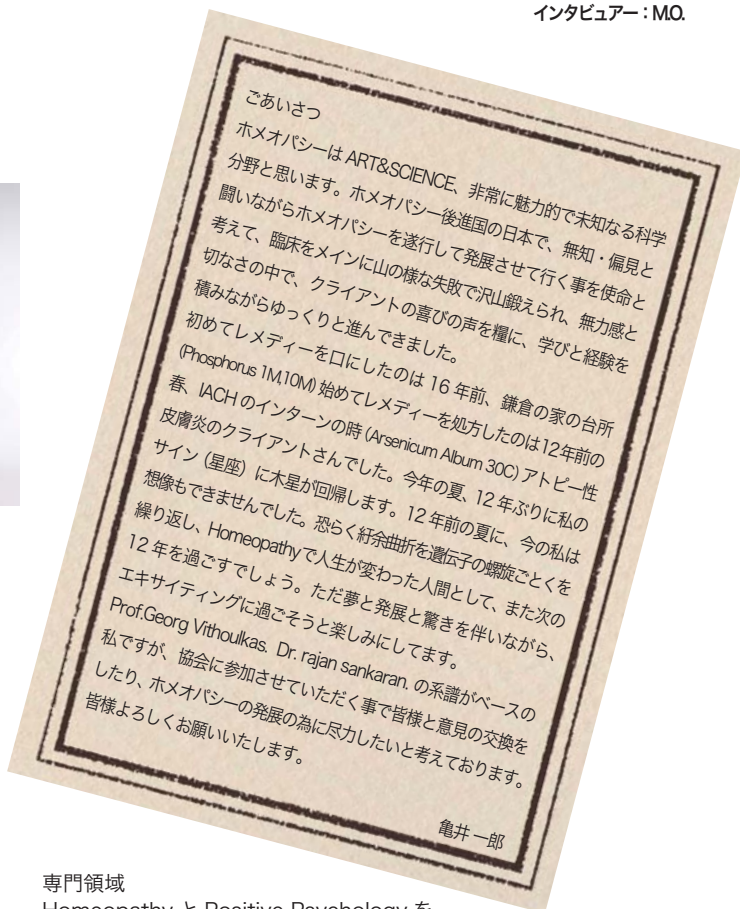 インタビュアー：M.O.
ごあいさつ
ホメオパシーは ART&SCIENCE、非常に魅力的で未知なる科学
分野と思います。ホメオパシー後進国の日本で、無知・偏見と
闘いながらホメオパシーを遂行して発展させて行く事を使命と
考えて、臨床をメインに山の様な失敗で沢山鍛えられ、無力感と
切なさの中で、クライアントの喜びの声を糧に、学びと経験を
積みながらゆっくりと進んできました。
初めてレメディーを口にしたのは 16 年前、鎌倉の家の台所
(Phosphorus 1M,10M) 始めてレメディーを処方したのは12年前の
春、IACH のインターンの時 (Arsenicum Album 30C) アトピー性
皮膚炎のクライアントさんでした。今年の夏、12 年ぶりに私の
サイン（星座）に木星が回帰します。12 年前の夏に、今の私は
想像もできませんでした。恐らく紆余曲折を遺伝子の螺旋ごとくを
繰り返し、Homeopathyで人生が変わった人間として、また次の
12 年を過ごすでしょう。ただ夢と発展と驚きを伴いながら、
エキサイティングに過ごそうと楽しみにしてます。
Prof.Georg Vithoulkas. Dr. rajan sankaran. の系譜がベースの
私ですが、協会に参加させていただく事で皆様と意見の交換を
したり、ホメオパシーの発展の為に尽力したいと考えております。
皆様よろしくお願いいたします。
亀井 一郎
専門領域
Homeopathy と Positive Psychology を